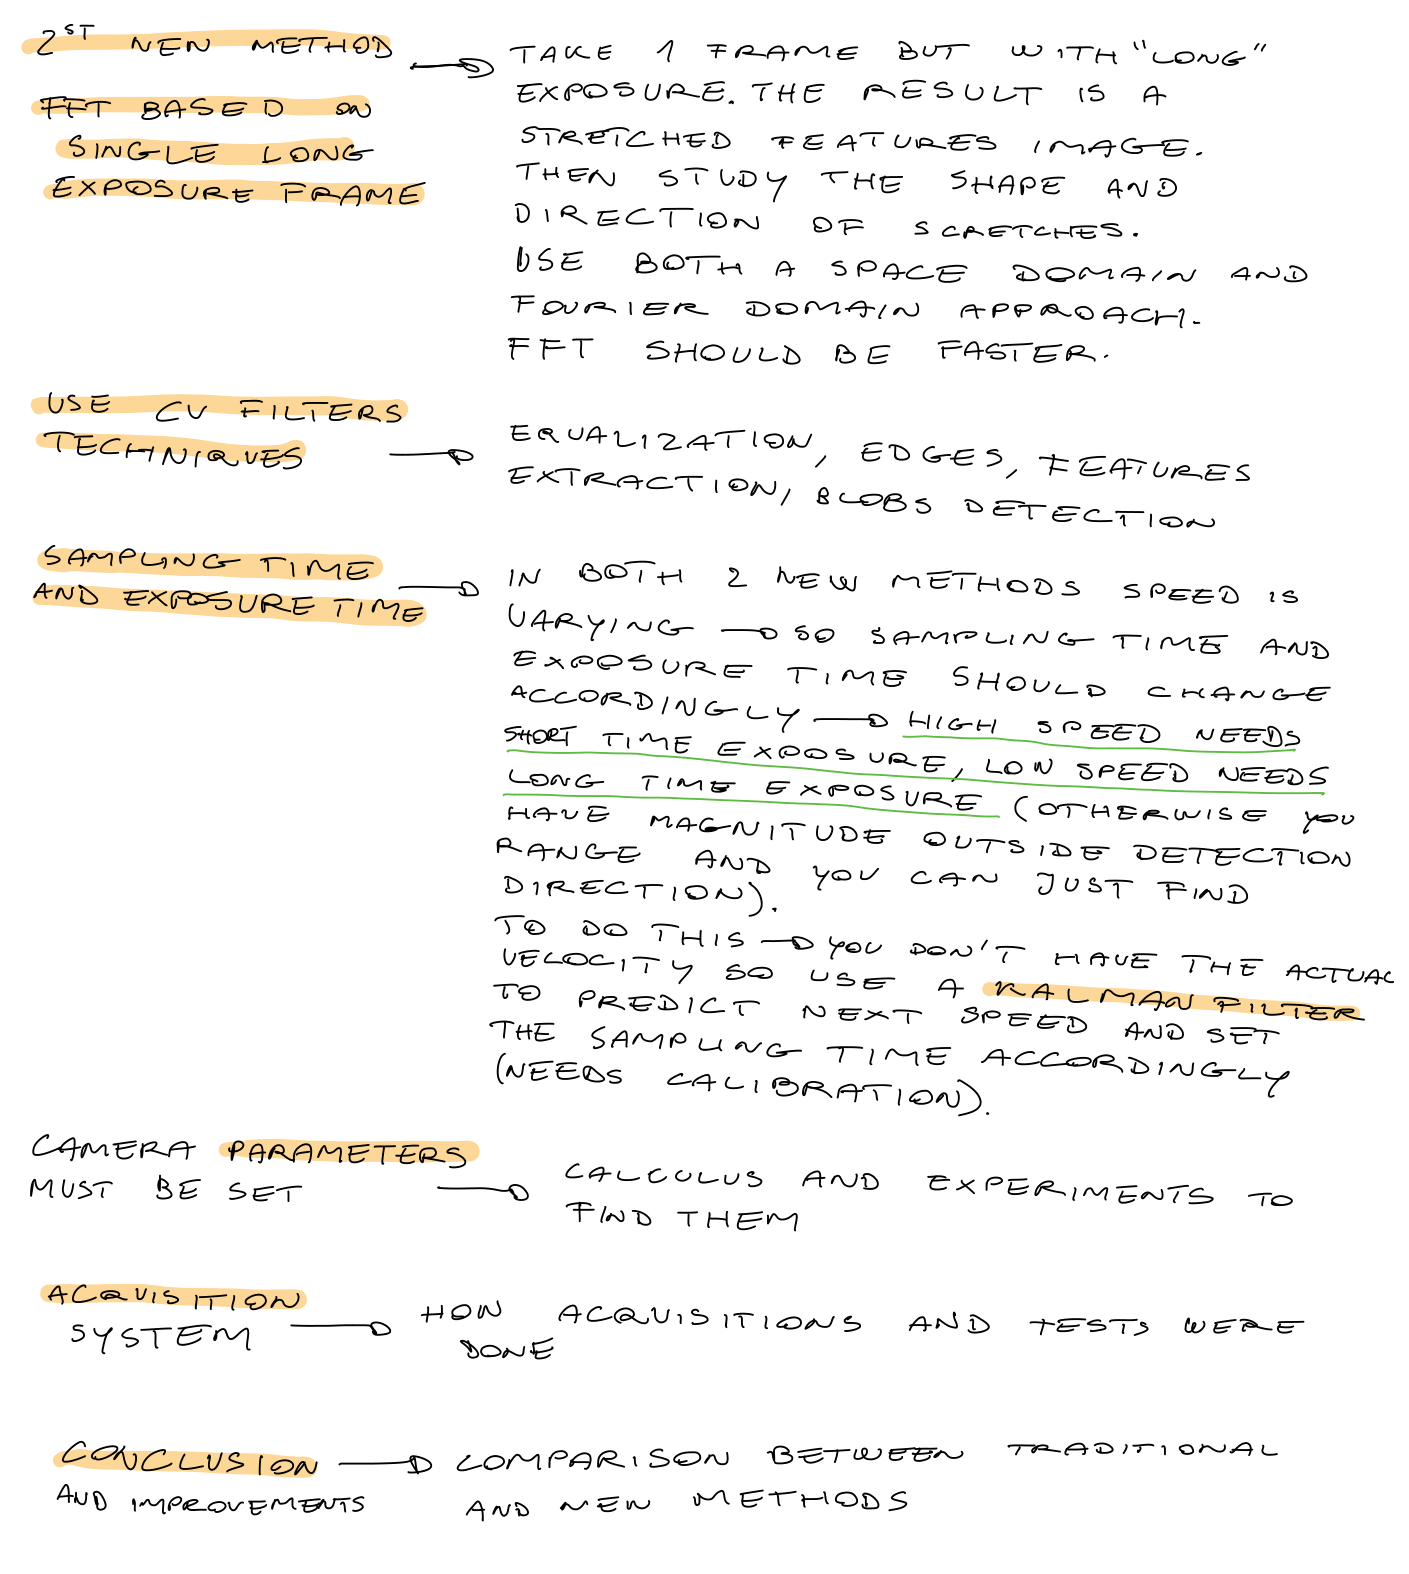 2ST NEW METHOD
FFT BASED ON
SINGLE LONG
EXPOSURE FRAME
TAKE 1 FRAME BUT WITH "LONG"
EXPOSURE. THE RESULT IS A
STRETCHED FEATURES IMAGE.
THEN STUDY THE SHAPE AND
DIRECTION OF SCRETCHES.
USE BOTH A SPACE DOMAIN AND
FOURIER DOMAIN APPROACH.
FFT SHOULD BE FASTER.
USE CV FILTERS
TECHNIQUES
EQUALIZATION, EDGES, FEATURES
EXTRACTION, BLOBS DETECTION
SAMPLING TIME
AND EXPOSURE TIME
IN BOTH 2 NEW METHODS SPEED IS
VARYING → SO SAMPLING TIME AND
EXPOSURE TIME SHOULD CHANGE
ACCORDINGLY → HIGH SPEED NEEDS
SHORT TIME EXPOSURE, LOW SPEED NEEDS
LONG TIME EXPOSURE (OTHERWISE YOU
HAVE MAGNITUDE OUTSIDE DETECTION
RANGE AND YOU CAN JUST FIND
DIRECTION).
TO DO THIS → YOU DON'T HAVE THE ACTUAL
VELOCITY SO USE A KALMAN FILTER
TO PREDICT NEXT SPEED AND SET
THE SAMPLING TIME ACCORDINGLY
(NEEDS CALIBRATION).
CAMERA PARAMETERS
MUST BE SET
CALCULUS AND EXPERIMENTS TO
FIND THEM
ACQUISITION
SYSTEM
HOW ACQUISITIONS AND TESTS WERE
DONE
CONCLUSION
AND IMPROVEMENTS
COMPARISON BETWEEN TRADITIONAL
AND NEW METHODS